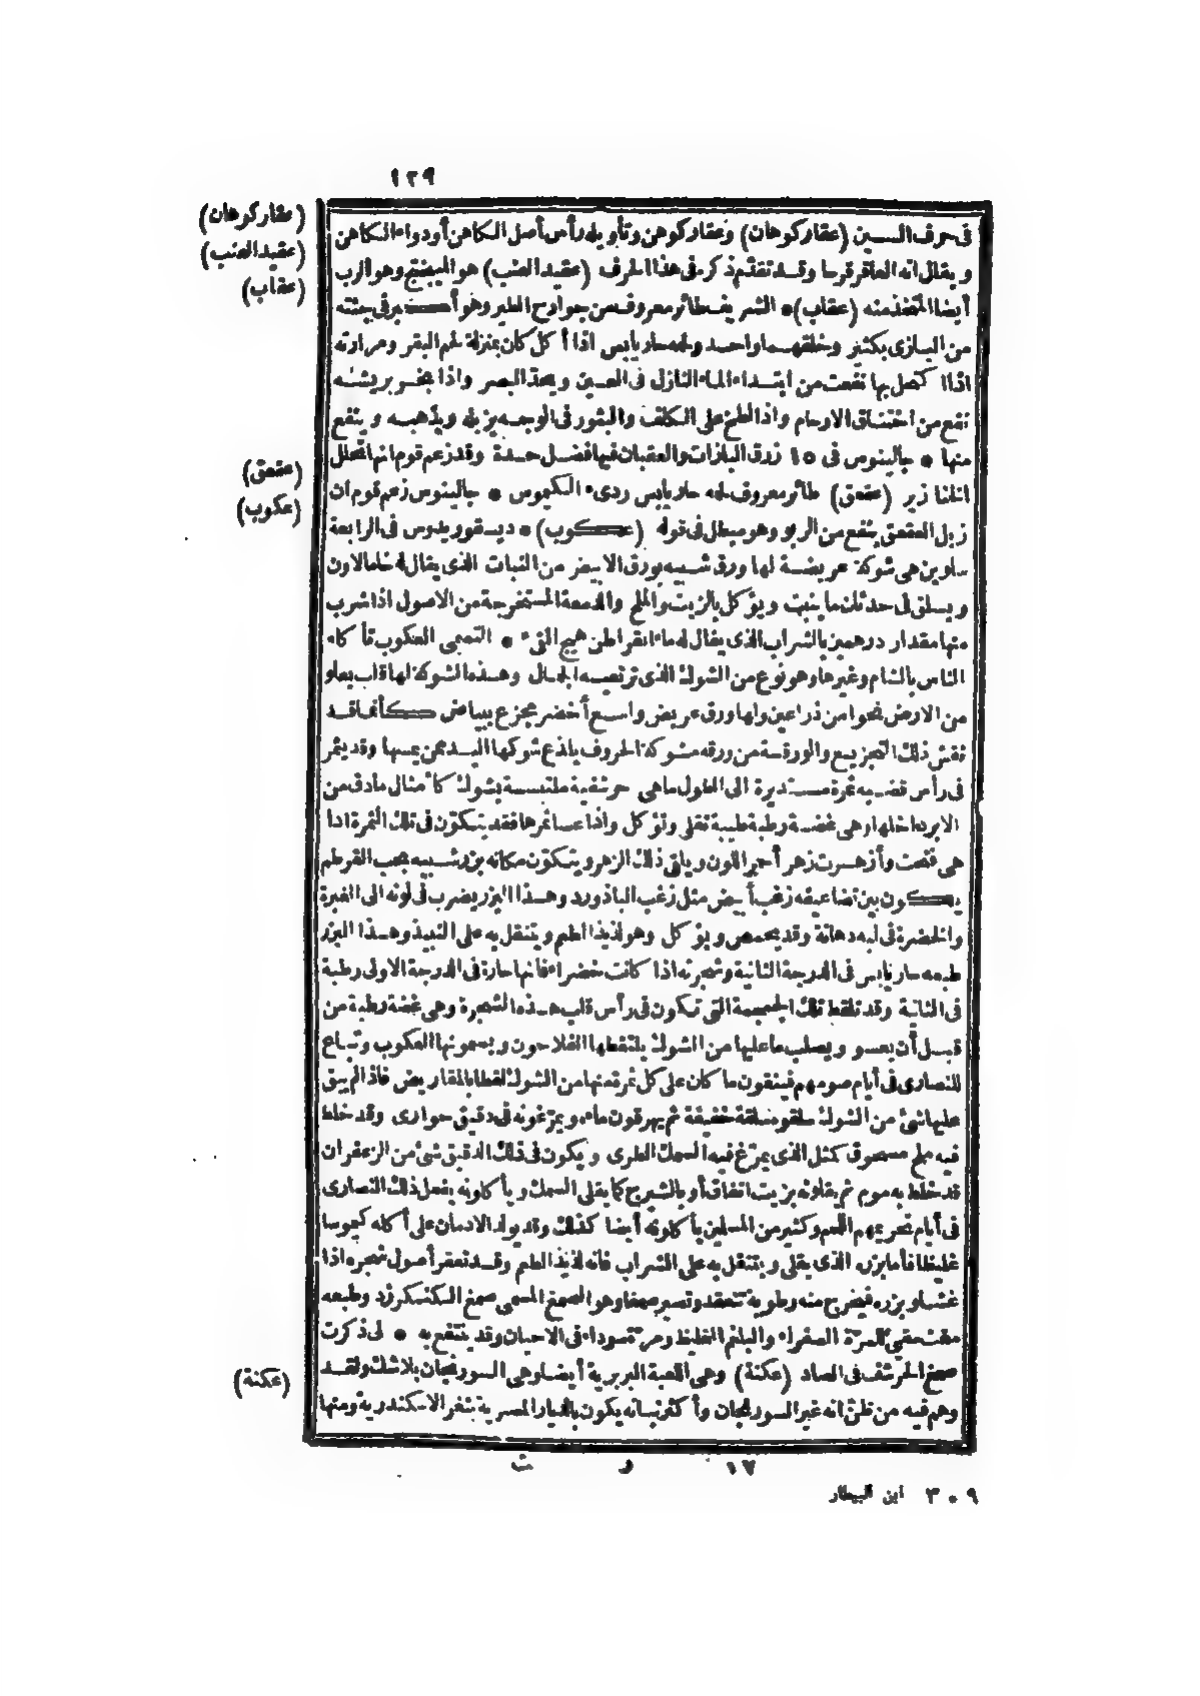 ١٢٩
(عقاركوهان)
(عقيد العنب)
(عقاب)
فى حرف السين (عقاركوهان) وعقاركوهن وتأويله رأس أصل الكاهن أو دواء الكاهن
ويقال انه العاقرقرحا وقد تقدّم ذكره فى هذا الحرف (عقيد العنب) هو الميبختج وهو الرب
أيضا المتخذ منه (عقاب) * الشريف طائر معروف من جوارح الطير وهو أكبر فى جثته
من البازى بكثير وخلقهما واحد ولحمه حار يابس اذا أكل كان بمنزلة لحم البقر ومرارته
اذا اكتحل بها نفعت من ابتداء الماء النازل فى العين ويحدّ البصر واذا بخر بريشه
نفع من اختناق الارحام واذا لطخ على الكلف والبثور فى الوجه يزيله ويذهبه وينفع
منها * جالينوس فى ١٥ زرق البازات والعقبان فيها فضل حدة وقد زعم قوم انها تحلل
(عقعق)
اثلنا زير (عقعق) طائر معروف لحمه حار يابس ردىء الكيموس * جالينوس زعم قوم ان
(عكوب)
زبل العقعق ينفع من الربو وهو مبطل فى قوله (عكوب) * ديسقوريدوس فى الرابعة
سلوبن هى شوكة عريضة لها ورق شبيه بورق الابيض من النبات الذى يقال له خامالاون
ويسلق فى حدثان ما ينبت ويؤكل بالزيت والملح والدمعة المستخرجة من الاصول اذا شرب
منها مقدار درهمين بالشراب الذى يقال له ماء انقراطن هيج القىء * التميمى العكوب تأكله
الناس بالشام وغيرها وهو نوع من الشوك الذى ترتعيه الجمال وهذه الشوكة لها قاب يعلو
من الارض نحوا من ذراعين ولها ورق عريض واسع أخضر مجزع ببياض كأنما قد
نقش ذلك التجزيع والورقة من ورقه مشوكة الحروف يلذع شوكها اليد ممن يمسها وقد يثمر
فى رأس قضيبه ثمرة مستديرة الى الطول ما هى حرشفية ملتبسة بشوك كأمثال ما دق من
الابر داخلها وهى غضة رطبة طيبة تقلى وتؤكل واذا عسا ثمرها فقد يتكوّن فى تلك الثمرة اذا
هى فتحت وأزهرت زهر أحمر اللون ويلقى ذلك الزهر ويتكوّن مكانه بزر شبيه بحب القرطم
يكون بين تضاعيفه زغب أبيض مثل زغب الباذورد وهذا البزر يضرب فى لونه الى الغبرة
والخضرة فى لبه دهانة وقد يحمص ويؤكل وهو لذيذ الطعم ويتنقل به على النبيذ وهذا البزر
طبعه حار يابس فى الدرجة الثانية وشجرته اذا كانت خضراء فانها حارة فى الدرجة الاولى رطبة
فى الثانية وقد تلقط تلك الجمجمة التى تكون فى رأس قاب هذه الشجرة وهى غضة رطبة من
قبل أن يعسو ويصلب ما عليها من الشوك يلتقطها الفلاحون ويسمونها العكوب وتباع
للنصارى فى أيام صومهم فينقون ما كان على كل ثمرة منها من الشوك لقطا بالمقاريض فاذا لم يبق
عليها شئ من الشوك سلقوه سلقة خفيفة ثم يهرقون ماءه ويمرّغونه فى دقيق حوارى وقد خلط
فيه ملح مسحوق كمثل الذى يمرّغ فيه السمك الطرى ويكون فى ذلك الدقيق شئ من الزعفران
قد خلط به موم ثم يقلونه بزيت انفاق أو بالشيرج كما يقلى السمك ويأكلونه يفعل ذلك النصارى
فى أيام تحريمهم اللحم وكثير من المسلمين يأكلونه أيضا كذلك وقد يولد الادمان على أكله كيموسا
غليظا فأما بزره الذى يقلى ويتنقل به على الشراب فانه لذيذ الطعم وقد تعقر أصول شجره اذا
غشا وبزره فيخرج منه رطوبة تنعقد وتصير صمغا وهو الصمغ المسمى صمغ الكنكرزد وطبعه
مغث مقيئ للمرّة الصفراء والبلغم الغليظ ومرّة سوداء فى الاحيان وقد ينتفع به * لى ذكرت
(عكنة)
صمغ الحرشف فى الصاد (عكنة) وهى اللعبة البربرية أيضا وهى السورنجان بلا شك ولقد
وهم فيه من ظنّ انه غير السورنجان وأكثر نباته يكون بالديار المصرية بثغر الاسكندرية ومنها
١٧ و ت
٣٠٩ ابن البيطار